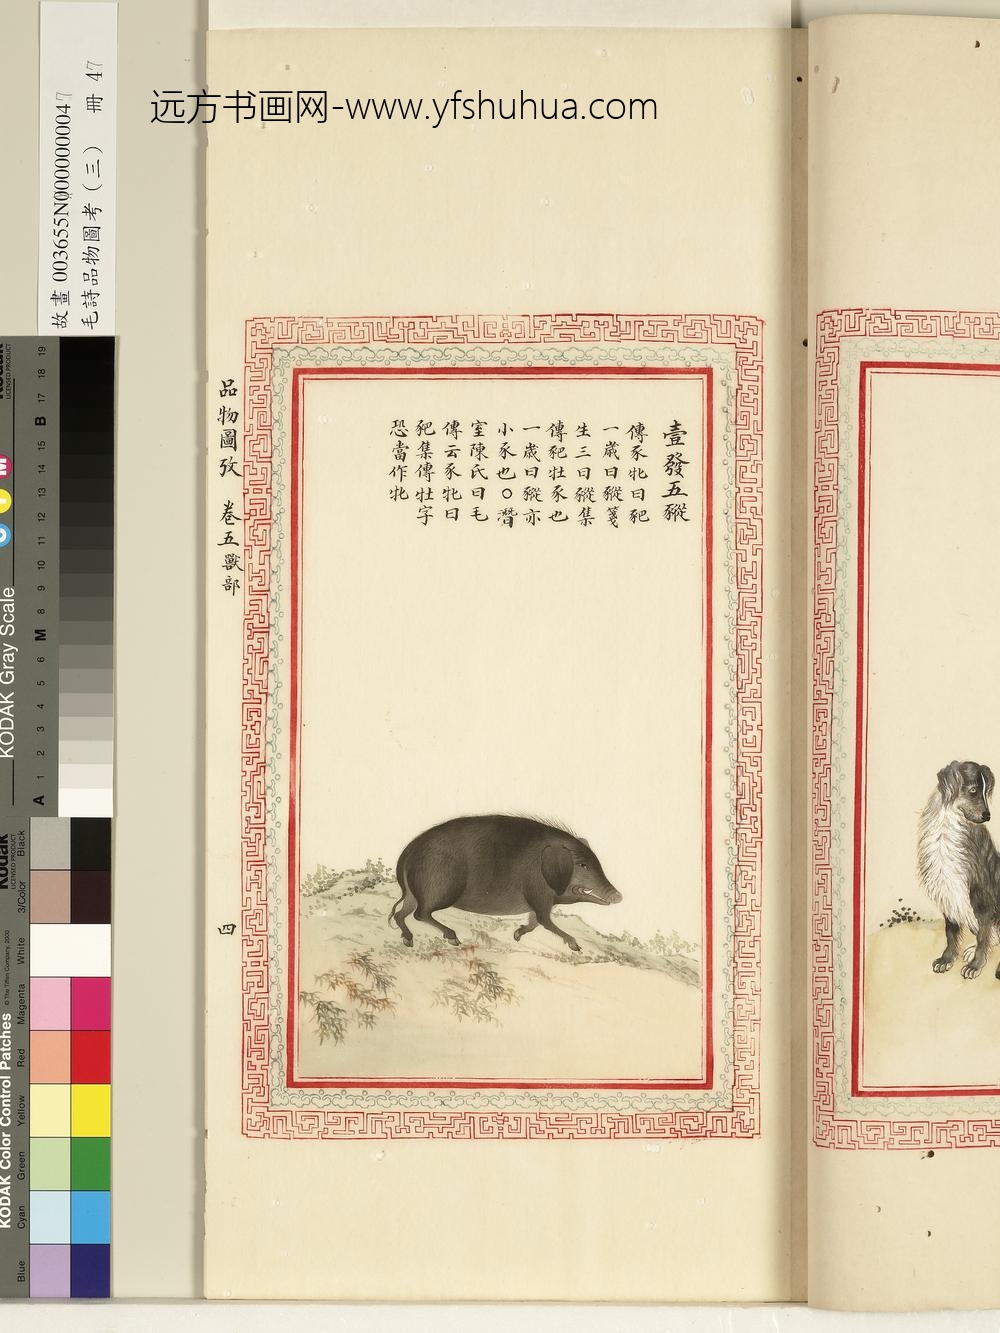 远方书画网-www.yfshuhua.com
故畫 003655N000000047
毛詩品物圖考（三） 冊 47
壹發五豵
傳豕牝曰豝
一歲曰豵箋
生三曰豵集
傳豝牡豕也
一歲曰豵亦
小豕也○潛
室陳氏曰毛
傳云豕牝曰
豝集傳牡字
恐當作牝
品物圖攷 卷五獸部
四
KODAK Gray Scale
Kodak
LICENSED PRODUCT
A 1 2 3 4 5 6 M 8 9 10 11 12 13 14 15 B 17 18 19
C
Y
M
KODAK Color Control Patches
© The Tiffen Company, 2000
Kodak
LICENSED PRODUCT
Blue Cyan Green Yellow Red Magenta White 3/Color Black